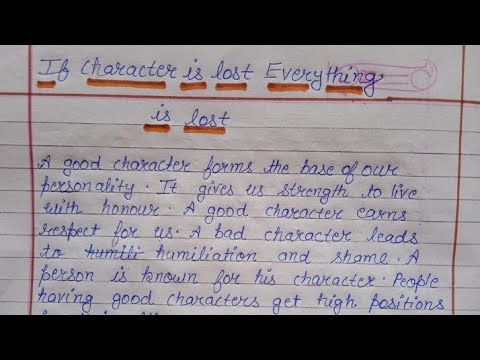 If character is lost Everything
is lost
A good character forms the base of our
personality. It gives us strength to live
with honour. A good character earns
respect for us. A bad character leads
to humili humiliation and shame. A
person is known for his character. People
having good characters get high positions